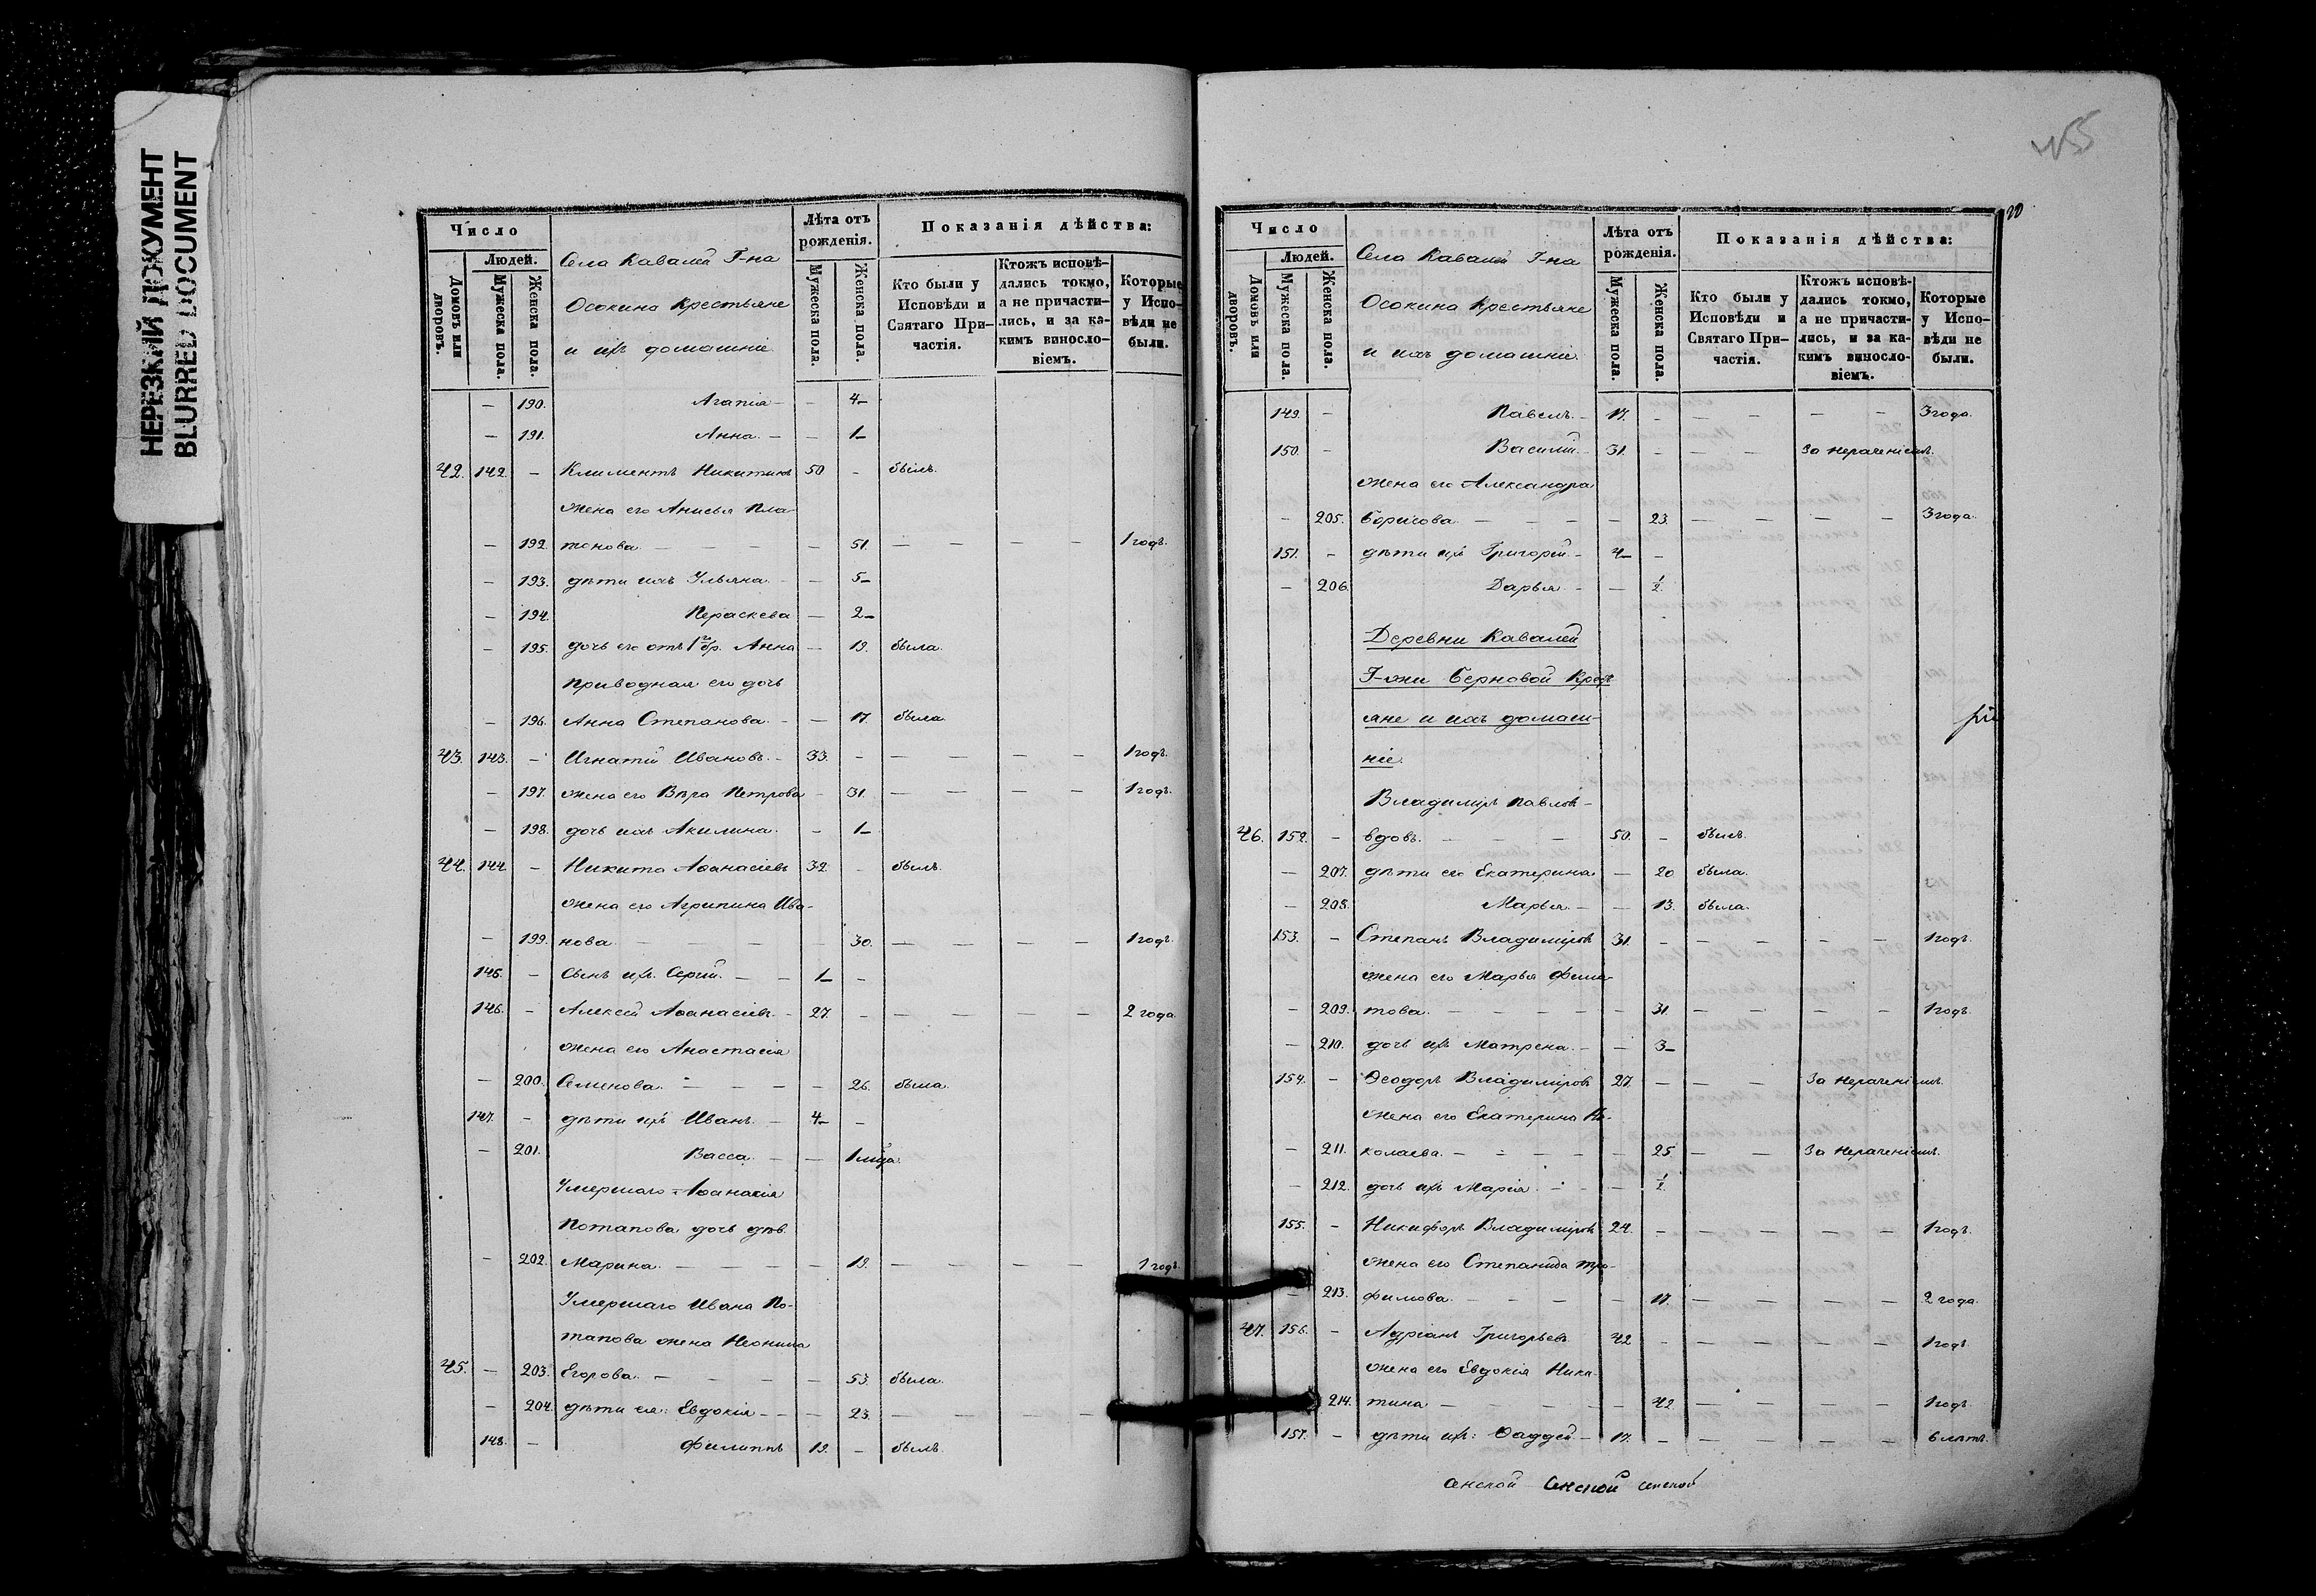 НЕРЕЗКИЙ ДОКУМЕНТ
BLURRED DOCUMENT
Число
Людей.
Домовъ или дворовъ.
Мужеска пола.
Женска пола.
Села Кавалей Г-на
Осокина Крестьяне
и ихъ домашніе
Лѣта отъ рожденія.
Мужеска пола.
Женска пола.
Показанія дѣйства:
Кто были у Исповѣди и Святаго Причастія.
Ктожъ исповѣдались токмо, а не причастились, и за какимъ винословіемъ.
Которые у Исповѣди не были.
— 190. Агапія — — 4—
— 191. Анна — — 1—
42. 142. — Климентъ Никитинъ 50 — былъ.
жена его Анисья Пла-
— 192. тонова — — — — 51. — — — — 1 годъ.
— 193. дѣти ихъ Ульяна — — 5—
— 194. Пераскева — 2—
— 195. дочь его отъ 1го бр. Анна — 19. была.
Приводная его дочь
— 196. Анна Степанова — — 17. была.
43. 143. — Игнатій Ивановъ — 33. — — — — — 1 годъ.
— 197. жена его Вѣра Петрова — 31. — — — — 1 годъ.
— 198. дочь ихъ Акилина — 1—
44. 144. — Никита Аѳанасіевъ 32 — былъ.
жена его Агрипина Ива-
— 199. нова — — — 30. — — — — 1 годъ.
145. — Сынъ ихъ Сергій — — 1— —
146. — Алексей Аѳанасіевъ — 27. — — — — — 2 года.
жена его Анастасія
— 200. Семенова — — — — 26. была.
147. — дѣти ихъ Иванъ — 4— —
— 201. Васса — — 1 мца.
Умершаго Аѳанасія
Потапова дочь дѣв.
— 202. Марина — — — — 19. — — — — 1 годъ.
Умершаго Ивана По-
тапова жена Неонила
45. — 203. Егорова — — — — 53. была.
— 204. дѣти ея: Евдокія — — — 23. — — — —
148. — Филиппъ 19. — былъ.
455
20
Число
Людей.
Домовъ или дворовъ.
Мужеска пола.
Женска пола.
Села Кавалей Г-на
Осокина Крестьяне
и ихъ домашніе.
Лѣта отъ рожденія.
Мужеска пола.
Женска пола.
Показанія дѣйства:
Кто были у Исповѣди и Святаго Причастія.
Ктожъ исповѣдались токмо, а не причастились, и за какимъ винословіемъ.
Которые у Исповѣди не были.
149. — Павелъ — 17. — — — — — 3 года.
150. — Василій — 31. — — — За нераченіемъ.
жена его Александра
— 205. Борисова — — — — 23. — — — — 3 года.
151. — дѣти ихъ Григорій — 4— —
— 206. Дарья — — ½.
Деревни Кавалей
Г-жи Берновой Кресть
яне и ихъ домаш-
ніе.
Владиміръ Павловъ —
46. 152. — вдовъ. — — — 50. — былъ.
— 207. дѣти его Екатерина — 20 была.
— 208. Марья — — 13. была.
153. — Степанъ Владиміровъ 31. — — — — — 1 годъ.
жена его Марья Фила-
— 209. това. — — — — — 31. — — — — 1 годъ.
— 210. дочь ихъ Матрена — — 3—
154. — Ѳеодоръ Владиміровъ 27. — — — За нераченіемъ.
жена его Екатерина Ни-
— 211. колаева. — — — — — 25 — — За нераченіемъ.
— 212. дочь ихъ Марія — — — ½.
155. — Никифоръ Владиміровъ 24. — — — — — 1 годъ.
жена его Степанида Тро-
— 213. фимова — — — — 17. — — — — 2 года.
47. 156. — Адріанъ Григорьевъ 42 — — — — — 1 годъ
жена его Евдокія Ники-
214. тина — — — — — 42 — — — — 1 годъ
157. — дѣти ихъ: Ѳаддей — 17. — — — — — 6 лѣтъ.